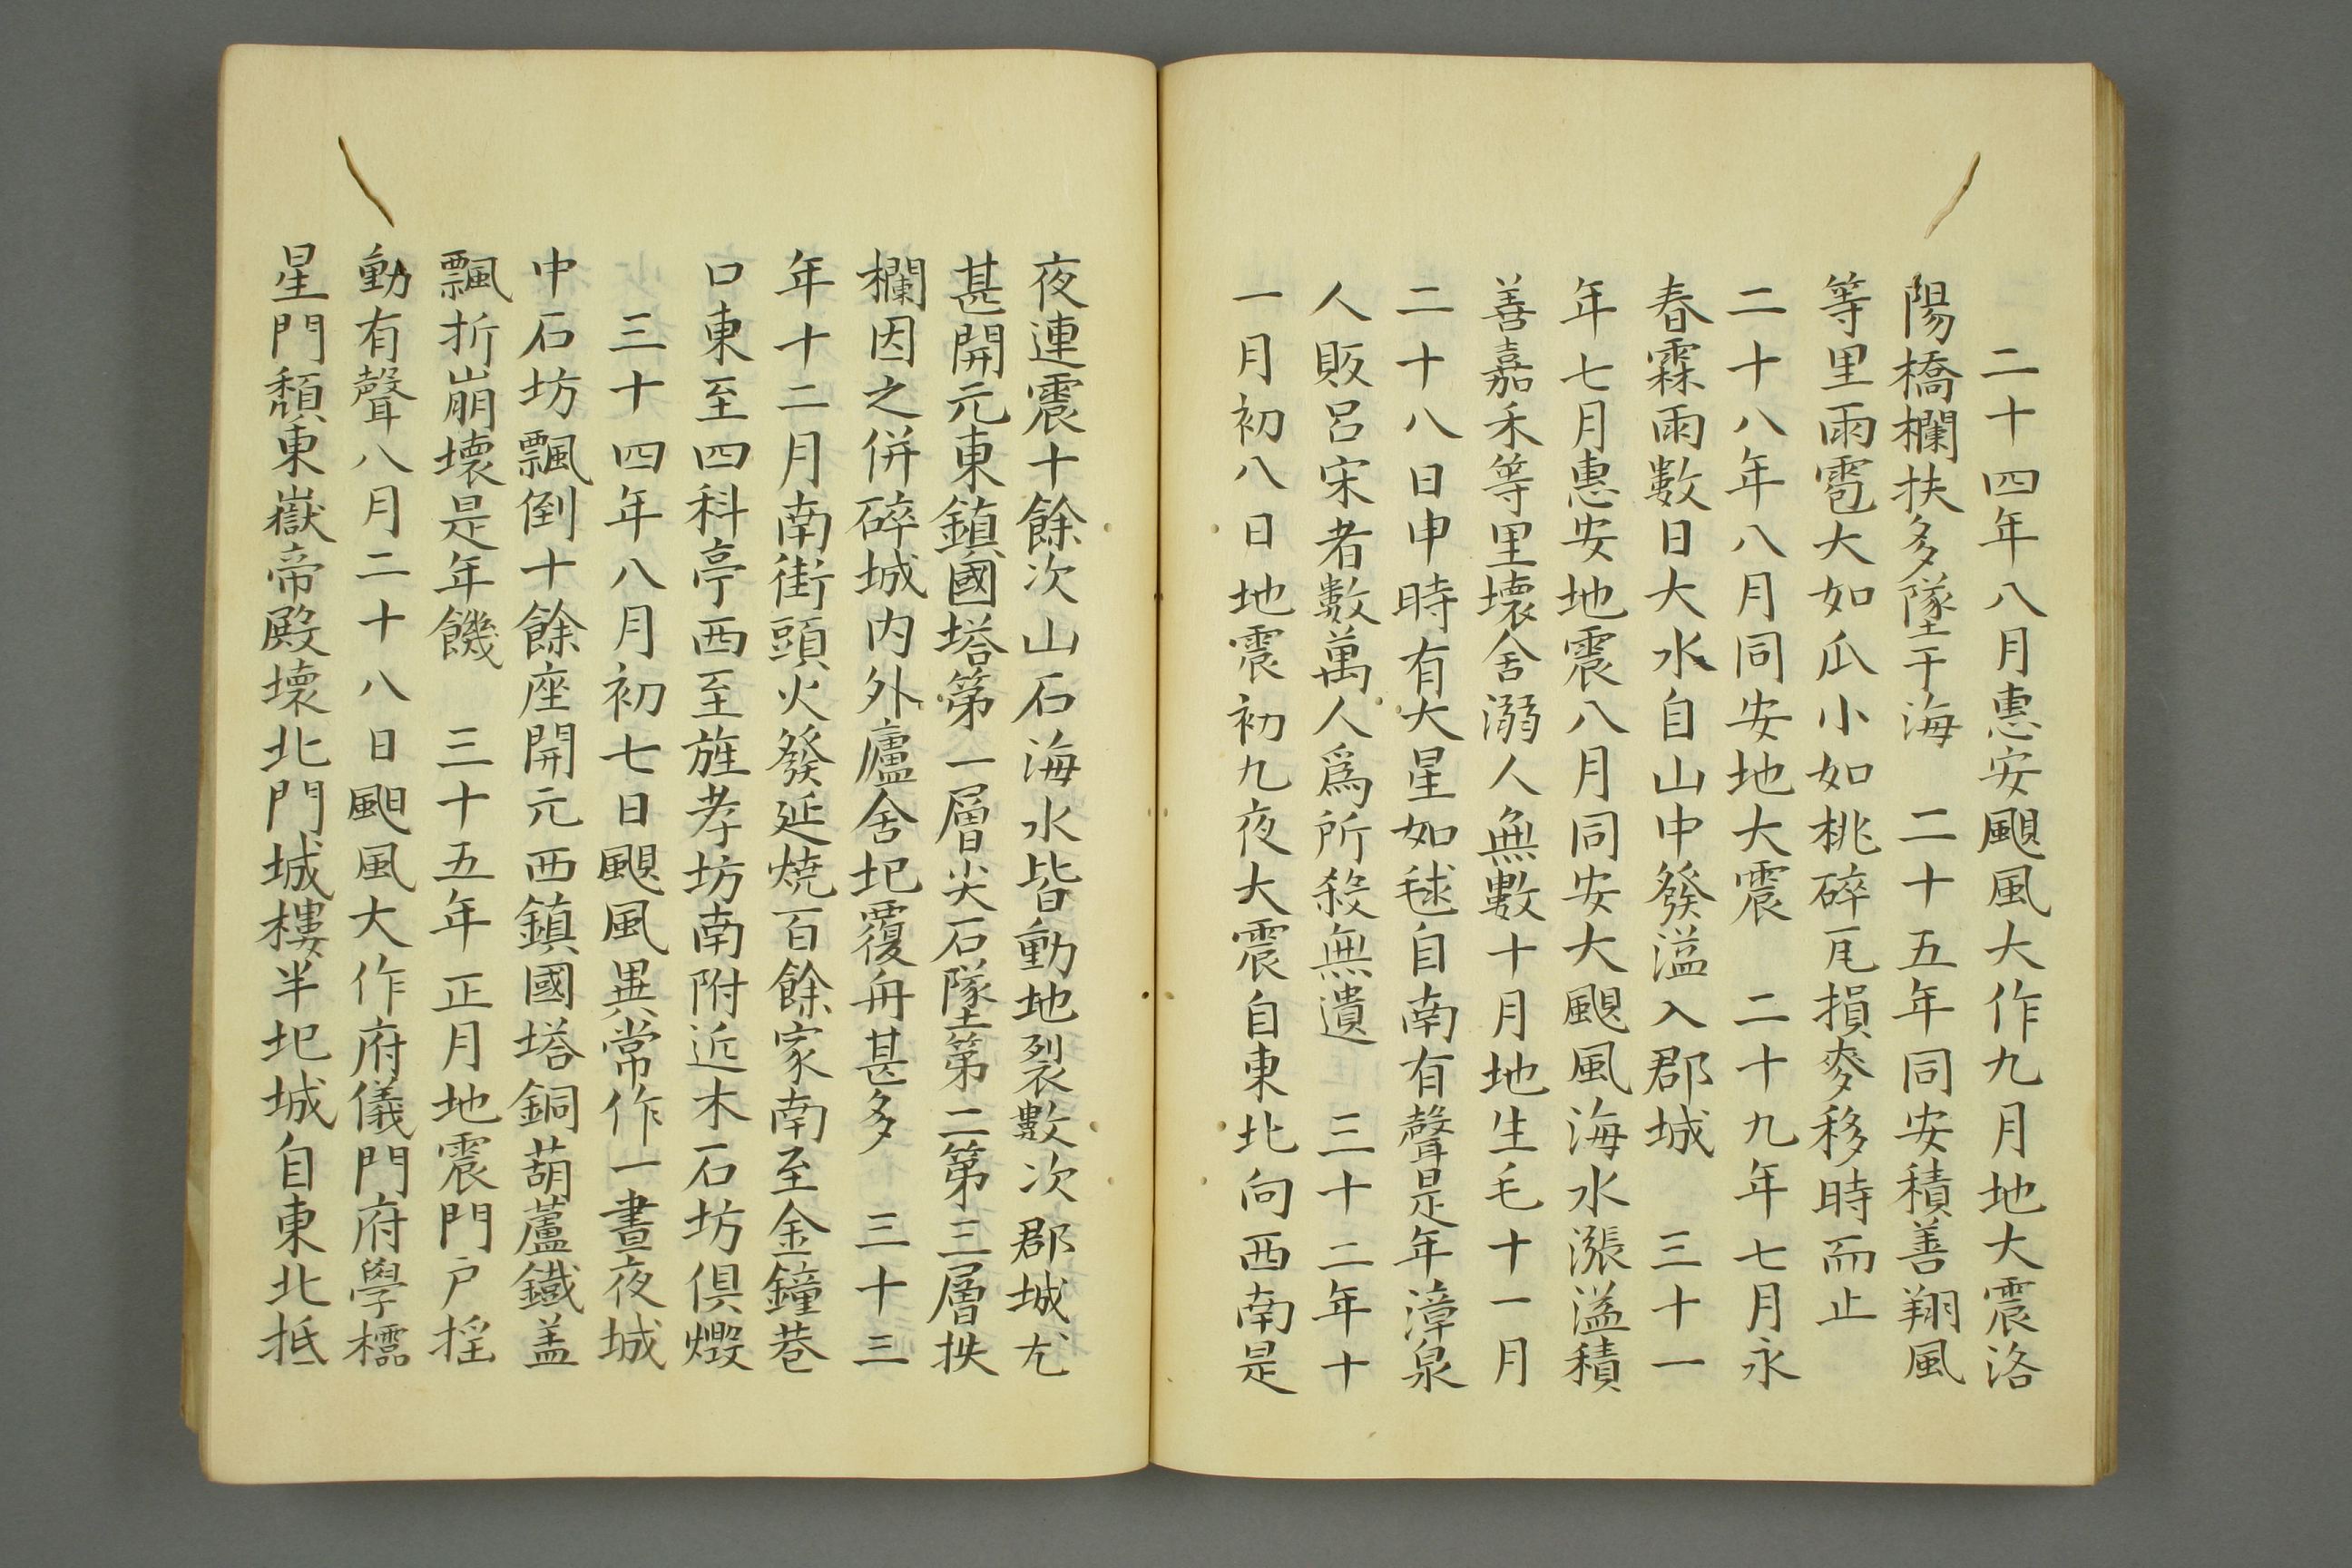 二十四年八月惠安颶風大作九月地大震洛
陽橋欄扶多墜于海　二十五年同安積善翔風
等里雨雹大如瓜小如桃碎瓦損麥移時而止
二十八年八月同安地大震　二十九年七月永
春霖雨數日大水自山中發溢入郡城　三十一
年七月惠安地震八月同安大颶風海水漲溢積
善嘉禾等里壞舍溺人無數十月地生毛十一月
二十八日申時有大星如毬自南有聲是年漳泉
人販呂宋者數萬人爲所殺無遺　三十二年十
一月初八日地震初九夜大震自東北向西南是
夜連震十餘次山石海水皆動地裂數次郡城尤
甚開元東鎮國塔第一層尖石墜第二第三層扶
欄因之併碎城内外廬舍圯覆舟甚多　三十三
年十二月南街頭火發延燒百餘家南至金鐘巷
口東至四科亭西至旌孝坊南附近木石坊俱燬
三十四年八月初七日颶風異常作一晝夜城
中石坊飄倒十餘座開元西鎮國塔銅葫蘆鐵盖
飄折崩壞是年饑　三十五年正月地震門戶搖
動有聲八月二十八日颶風大作府儀門府學櫺
星門頽東嶽帝殿壞北門城樓半圯城自東北抵